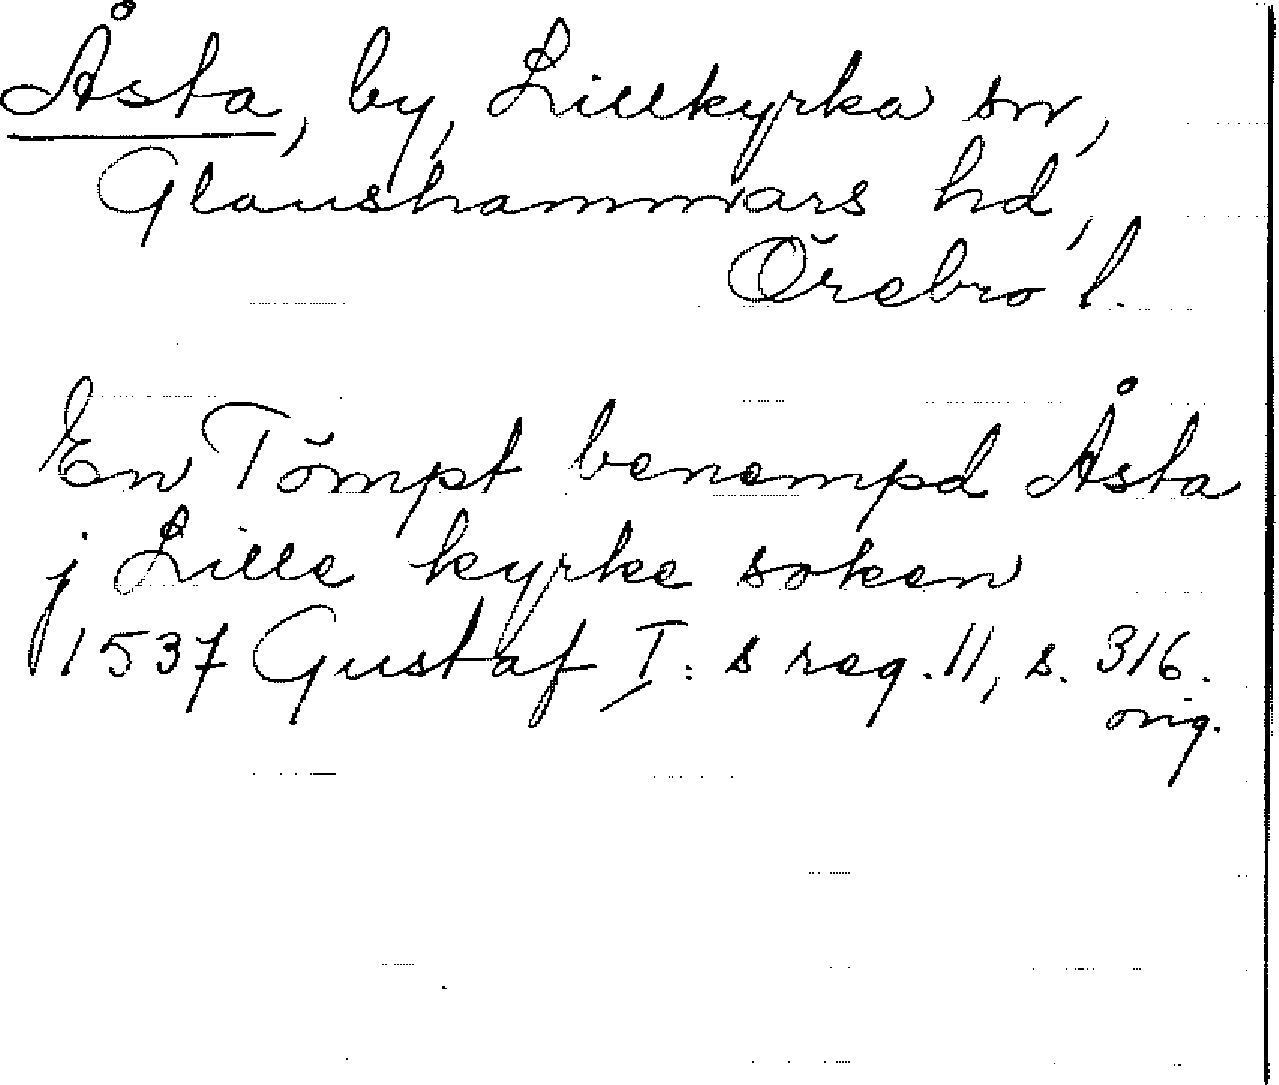 Åsta, by, Lillkyrka sn,
Glanshammars hd,
Örebro l.
En Tömpt benempd Åsta
j Lille kyrke soken
1537 Gustaf I:s reg. 11, s. 316.
orig.